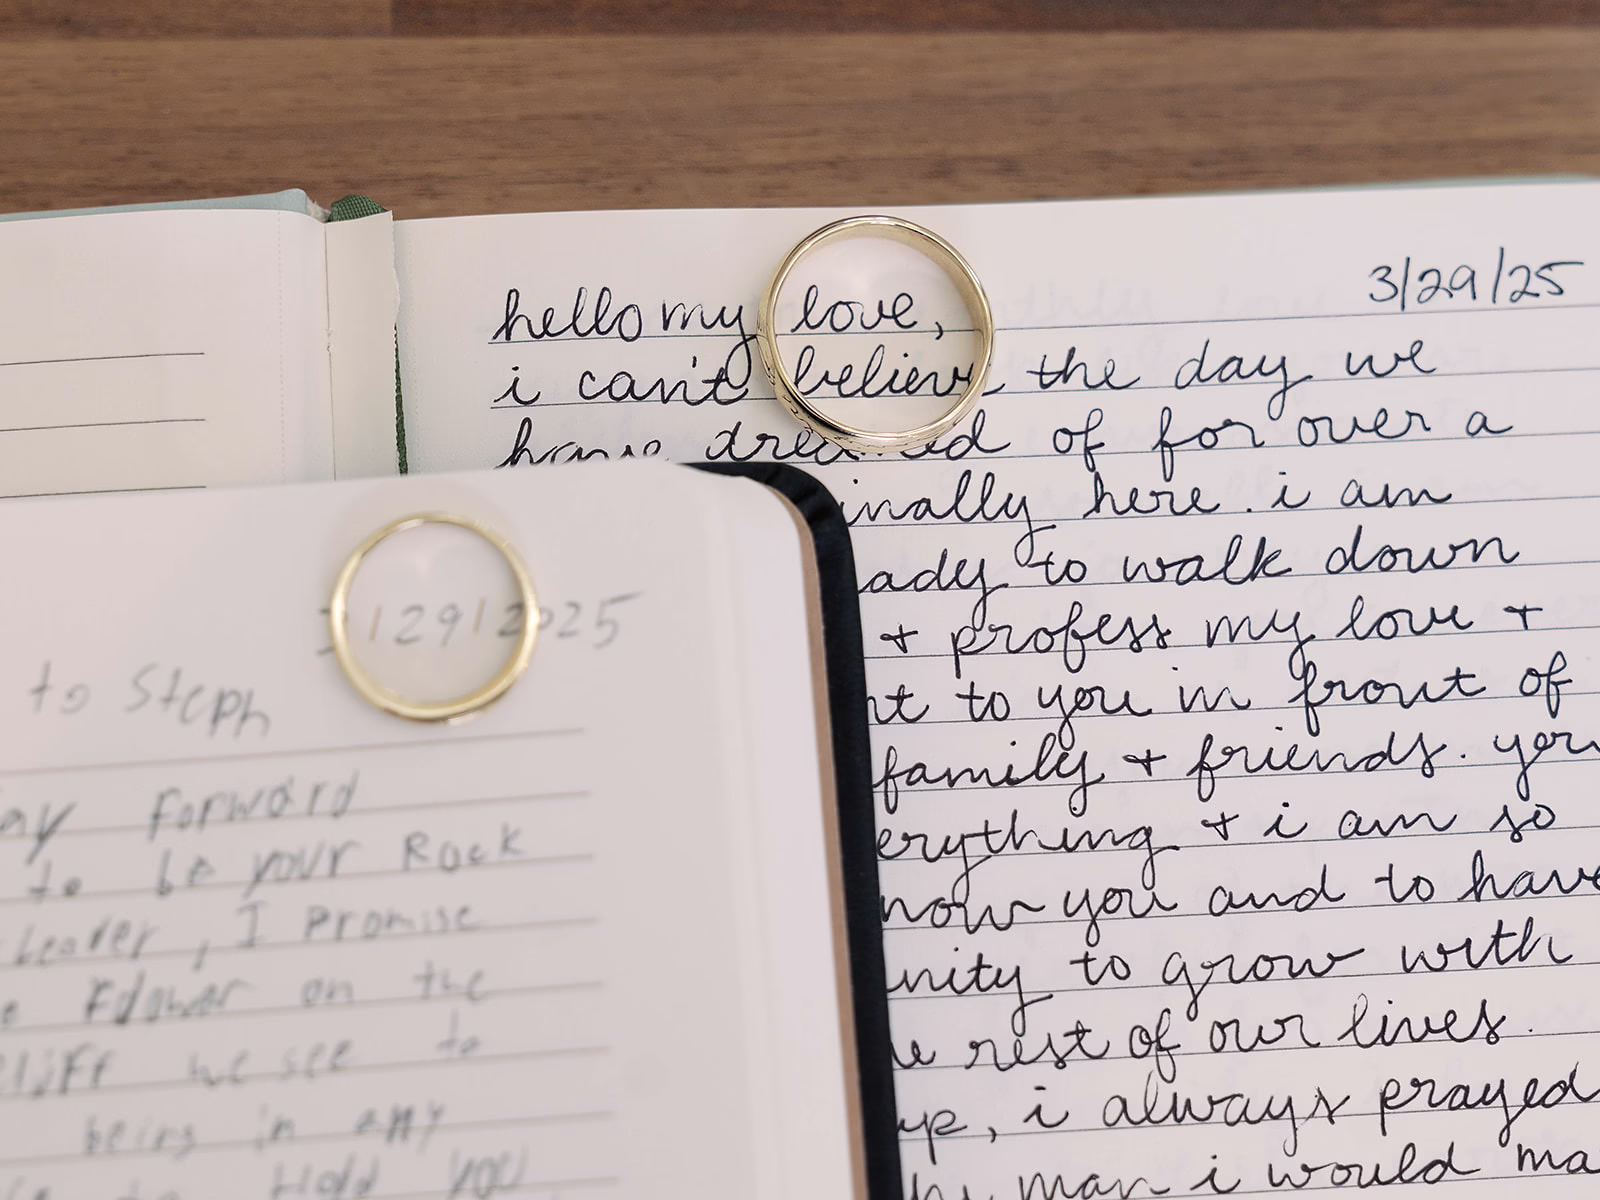 3/29/25
hello my love,
i can't believe the day we
have dreamed of for over a
inally here. i am
ady to walk down
+ profess my love +
nt to you in front of
family + friends. you
erything + i am so
now you and to have
nity to grow with
e rest of our lives.
up, i always prayed
he man i would ma
3/29/2025
to Steph
ay forward
to be your Rock
Leader, I promise
on the
cliff we see to
being in any
to Hold you